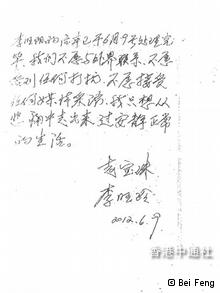 李旺阳的后事已于6月9号处理完
毕，我们不愿与外界联系，不愿
受到任何打扰，不愿接受
任何媒体采访，我只想从
悲痛中走出来，过安静正常
的生活。
李旺玲
2012.6.9
香港中通社
© Bei Feng